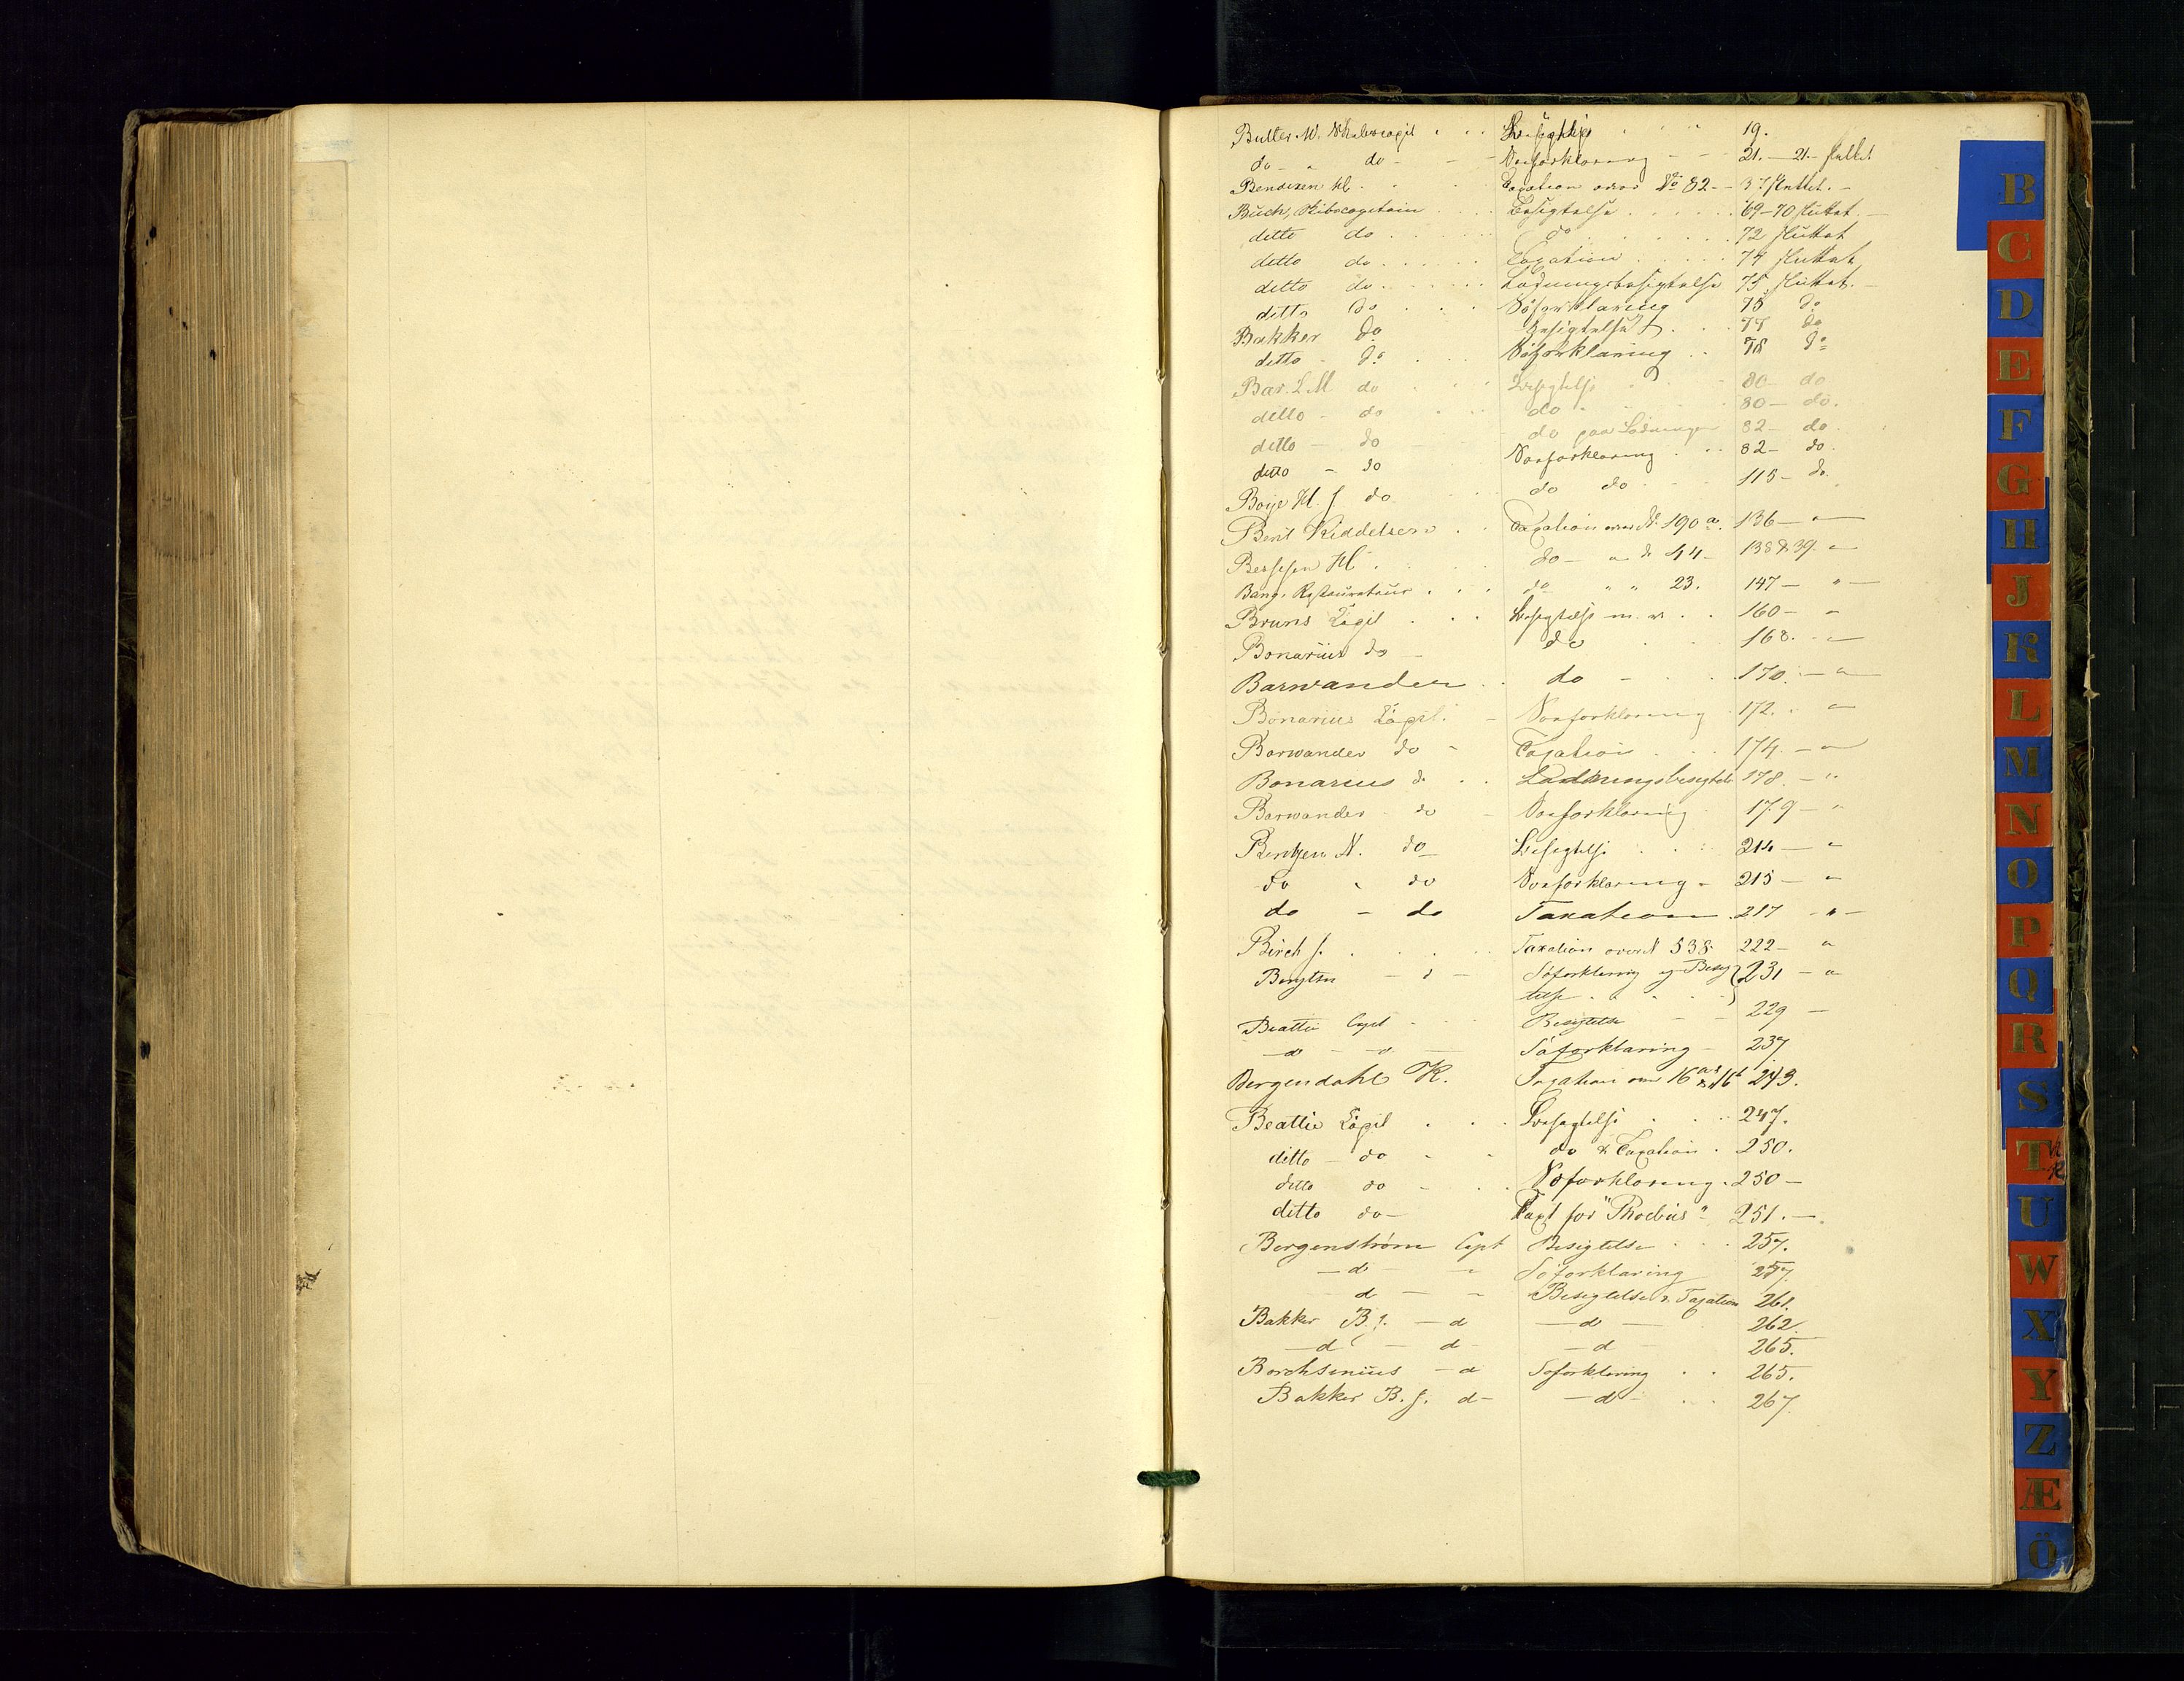 Butler W. Skibscapit . . Besigtelse . . 19.
do - " do - - - Søeforklaring - - 21. - 21 - sluttet
Bendixen H. . . Taxation over No 82 - 37 sluttet. -
Buch, Skibscapitain . . . Besigtelse . . . . . 69-70 sluttet. -
ditto do . . . . . do . . . . . 72 sluttet
ditto do . . . . Taxation . . . . 74 sluttet
ditto do . . . . . Ladningsbesigtelse 75 sluttet. -
ditto do . . . Söforklaring 75 do
Bakker do Besigtelse . . . 77 do
ditto - do . . . Söforklaring . . 78 do
Bar. L. M do . . . Besigtelse . . - 80 - do
ditto - do . . do . . 80 - do.
ditto - do - do paa Ladningen 82 - do.
ditto - do Søeforklaring . . . 82 - do.
Boye H. J. do . . . do do - . - 115 - do.
Berit Kiddelsen . . Taxation over N. 190 a. 136 - " -
Bessesen H. . . . do - " do 44 - 138 & 39. " -
Bang, Restaurateur . . . do " " 23. 147 - " -
Bruns Capit . . . Besigtelse m. v. . . 160 - "
Bonarius do - do . . 168. - " -
Barwander . . do - . . 170. - " -
Bonarius Capit. - Søeforklaring . 172. . " -
Barwander do - Taxation . . 174. - " -
Bonarius do . . Ladningsbesigtelse 178. - "
Barwander - do - Søeforklaring 179 - "
Bentzen N. do - Besigtelse . . : 214 - "
do " do Søeforklaring - 215 - "
do - do Taxation . 217 - " -
Birch J. . . . . . Taxation over N 538. 222 - "
Bengtson - d - Söforklaring og Besig} 231 - "
telse . . . . }
Beattie Capt - - - Besigtelse - - 229 -
- d - - d - - Söforklaring - 237
Bergendahl K. Taxation over 16 a & 16 b 243.
Beattie Capit . . . Besigtelse . . . 247.
ditto - do - - do & Taxation . 250.
ditto do - . . Søforklaring . 250 -
ditto do - Taxt for "Phoebus" - 251. -
Bergenstrøm Capt Besigtelse . . . 257.
- d - - Söforklaring 257.
d - - Besigtelse & Taxation 261.
Bakker B. J. - d - d - 262.
- d - d - - d - 265.
Borchsenius - d Söforklaring . . 265.
Bakker B. J. d - - d - . . 267.
B
C
D
E
F
G
H
J
K
L
M
N
O
P
Q
R
S
T
U
W
X
Y
Z
Æ
Ö